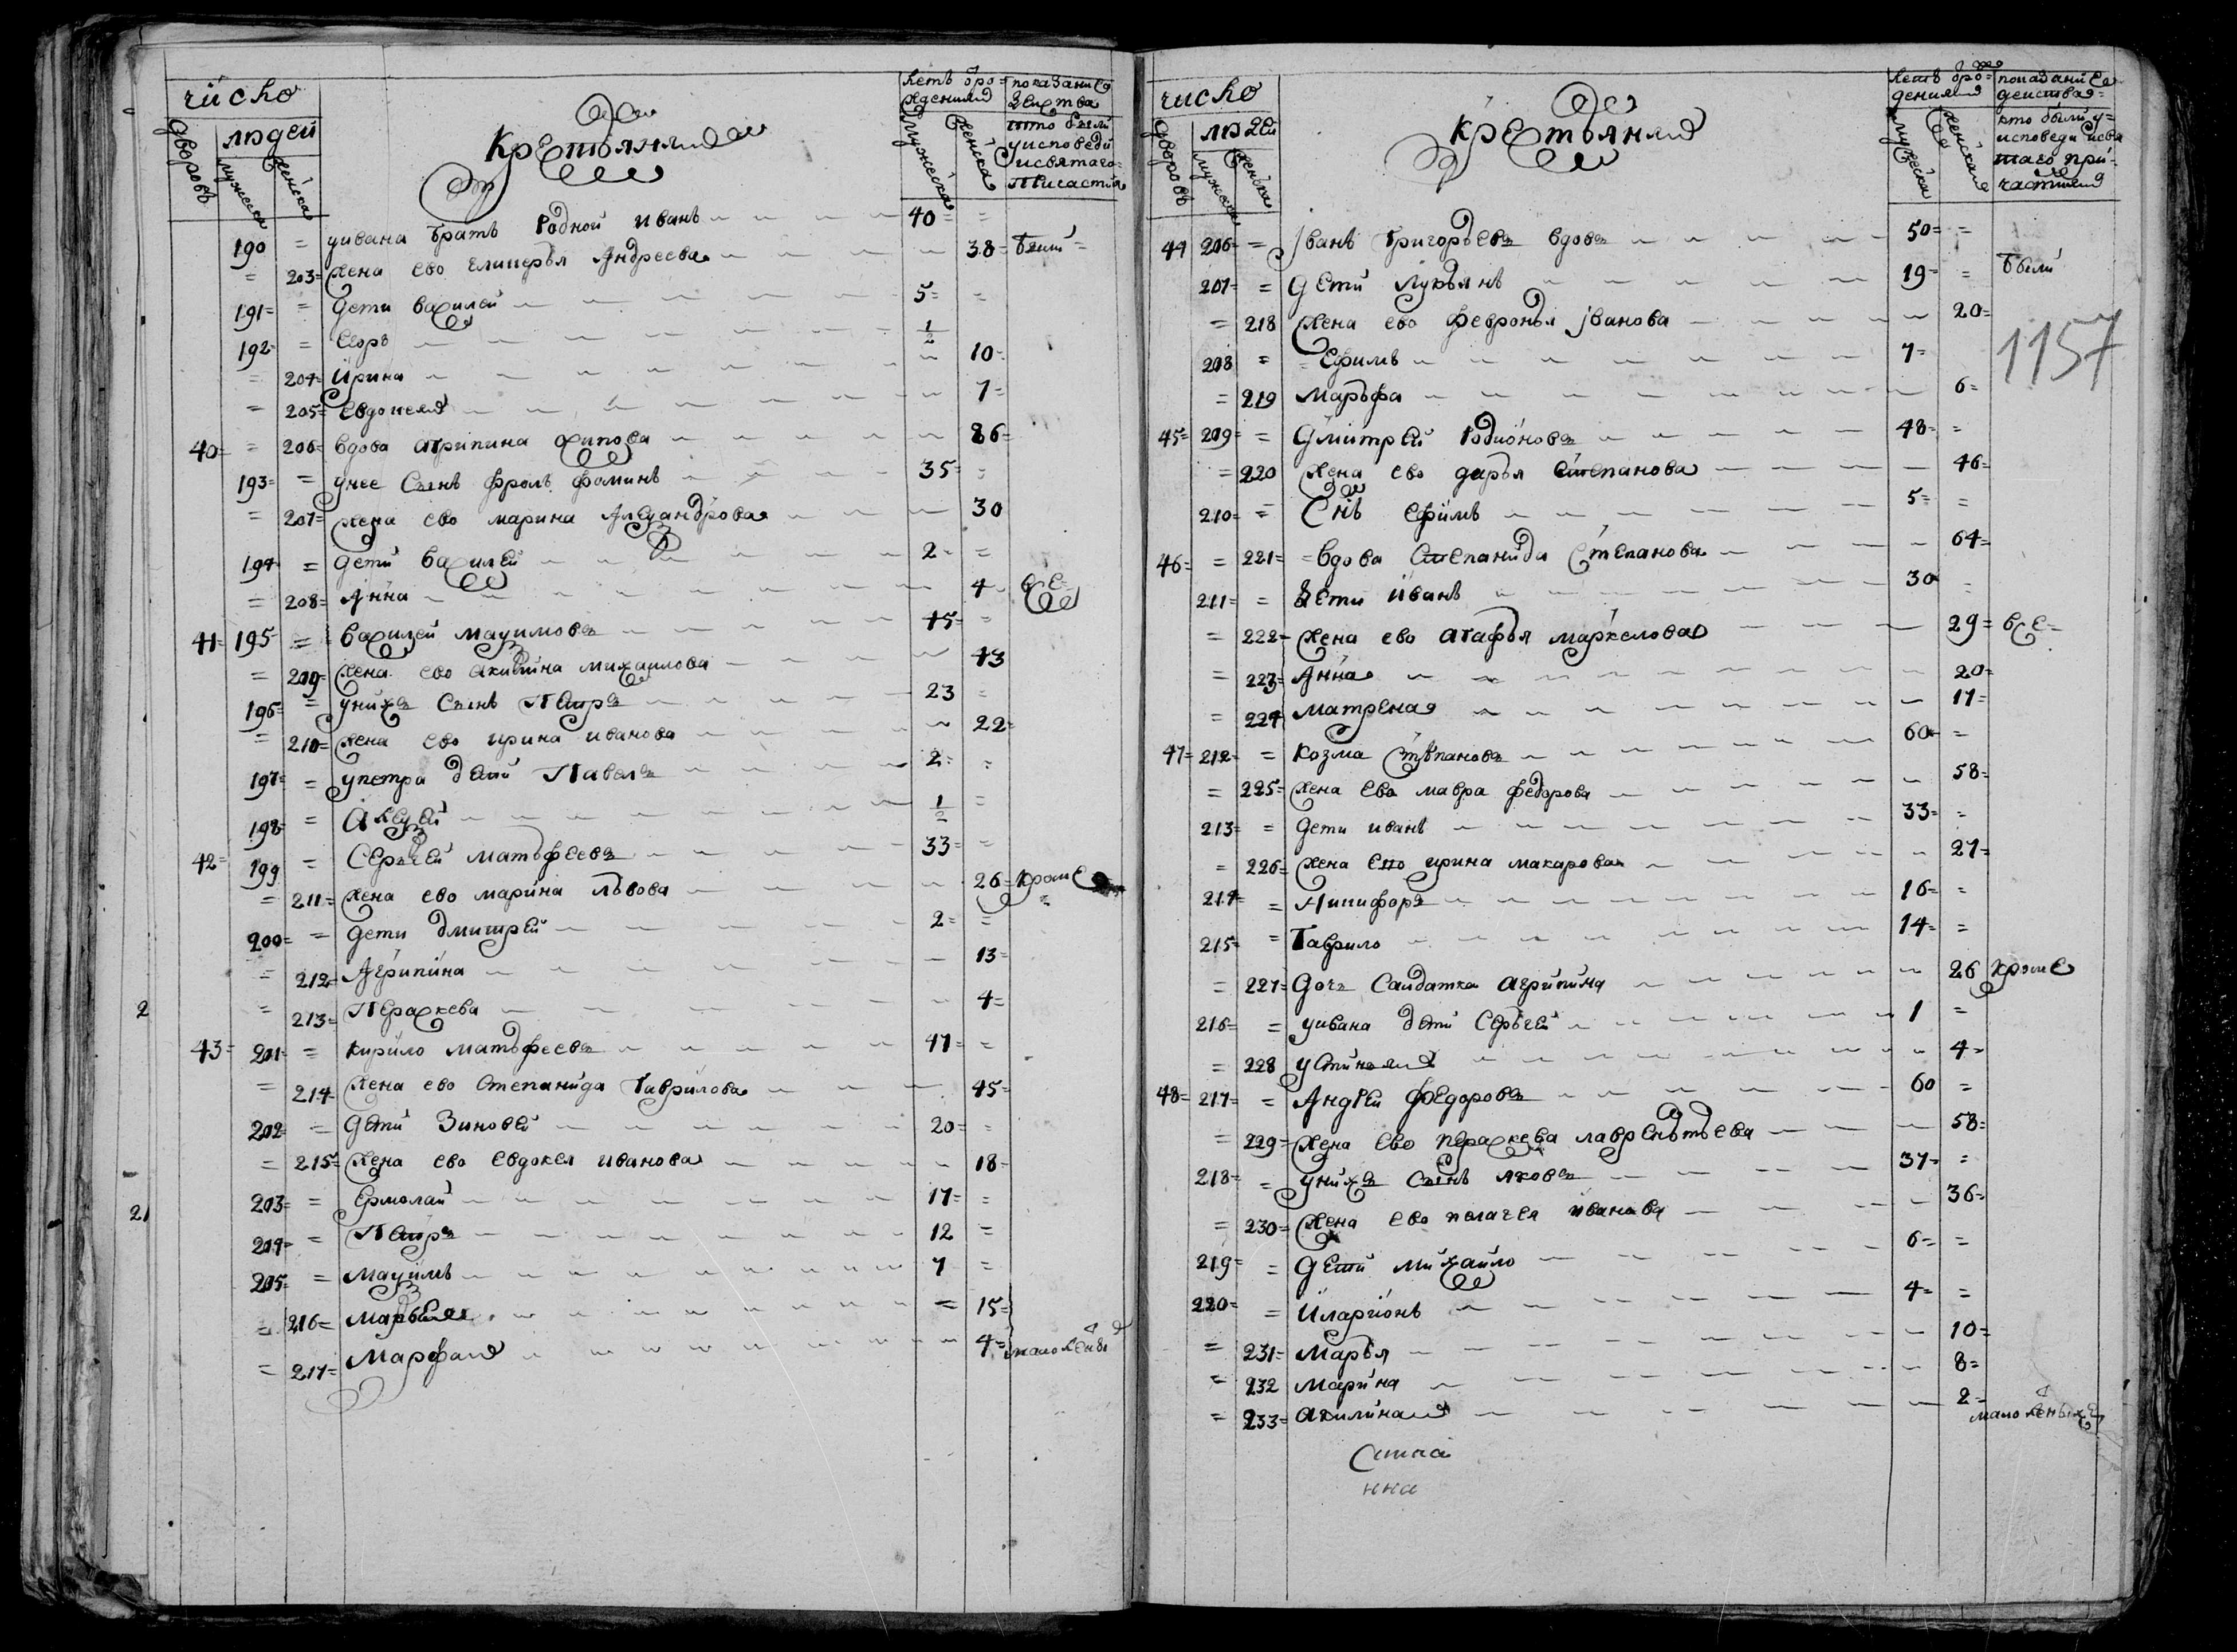 число
дворовъ
людей
мужеска
женска
крестьяня
летъ от рождения
мужеска
женска
показание действа
кто были
у исповеди
и святаго
причастия
190 = у ивана братъ родной иванъ 40 =
= 203 = жена ево гликерья Андреева 38 = были
191 = = дети василей 5 =
192 = = Егоръ 1/2
= 204 = Ирина 10
= 205 = Евдокея 7
40 = = 206 = вдова агрипина осипова 86
193 = = у нее сынъ фролъ фоминъ 35 =
= 207 = жена ево марина Александрова 30
194 = дети василей 2 =
= 208 = Анна 4 все
41 = 195 = василей максимовъ 45 =
= 209 = жена ево акилина михаилова 43
196 = = у нихъ сынъ Петръ 23 =
= 210 = жена ево ирина иванова 22 =
197 = = у петра дети Павелъ 2 =
198 = Алексей 1/2 =
42 = 199 = Сергей матьфеевъ 33 =
= 211 = жена ево марина львова 26 = кроме
200 = = дети дмитрей 2 =
= 212 = Агрипина 13
= 213 = Параскева 4 =
43 = 201 = кирило матьфеевъ 47 =
= 214 жена ево степанида Гаврилова 45 =
202 = = дети Зиновей 20 =
= 215 = жена ево евдокея иванова 18
203 = = Ермолай 17 =
204 = = Петръ 12 =
205 = = Максимъ 7 =
= 216 = Марья 15 =
= 217 = Марфа 4 = малолены
2
21
число
дворовъ
людей
мужеска
женска
крестьяня
летъ от рождения
мужеска
женска
показание действа
кто были у
исповеди и свя
таго при
частия
44 206 = Iванъ Григорьевъ вдовъ 50 = =
207 = = дети лукьянъ 19 = были
= 218 жена ево февронья iванова 20 =
1157
208 = Ефимъ 7 =
= 219 марьфа 6 =
45 = 209 = = дмитрей родионовъ 48 =
= 220 жена ево дарья степанова 46 =
210 = = Снъ ефимъ 5 = =
46 = = 221 = вдова степанида степанова 64 =
211 = = дети иванъ 30
= 222 = жена ево агафья маркелова 29 = все =
= 223 = Анна 20 =
= 224 матрена 17 =
47 = 212 = козма степановъ 60 =
= 225 = жена ево мавра федорова 58 =
213 = = дети иванъ 33 =
= 226 = жена ево ирина макарова 27 =
214 = = Никифоръ 16 =
215 = = Гаврило 14 =
= 227 = дочь салдатка агрипина 26 кроме
216 = = у ивана дети Сергей 1 =
= 228 устиния 4 =
48 = 217 = = Андрей федоровъ 60 =
= 229 = жена ево параскева лаврентьева 58 =
218 = = у нихъ сынъ яковъ 37 =
= 230 = жена ево пелагея иванова 36 =
219 = = дети михайло 6 = =
220 = = Иларионъ 4 = =
= 231 = Марья 10 =
= 232 марина 8 =
= 233 = акилина 2 =
малоленыхъ